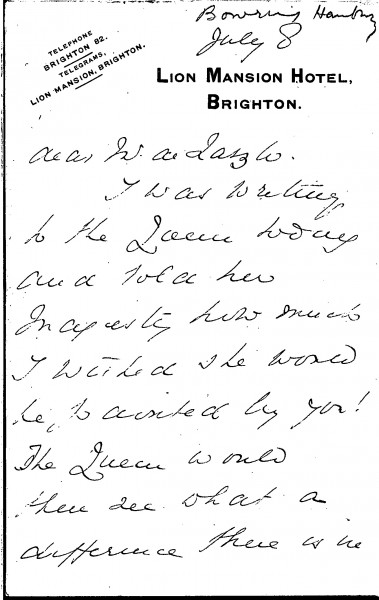 Bowring Hanbury
July 8
TELEPHONE
BRIGHTON 82.
TELEGRAMS,
LION MANSION, BRIGHTON.
LION MANSION HOTEL,
BRIGHTON.
dear Mr de Laszlo.
I was writing
to the Queen today
and told her
Majesty how much
I wished she would
be painted by you!
The Queen would
then see what a
difference there is in